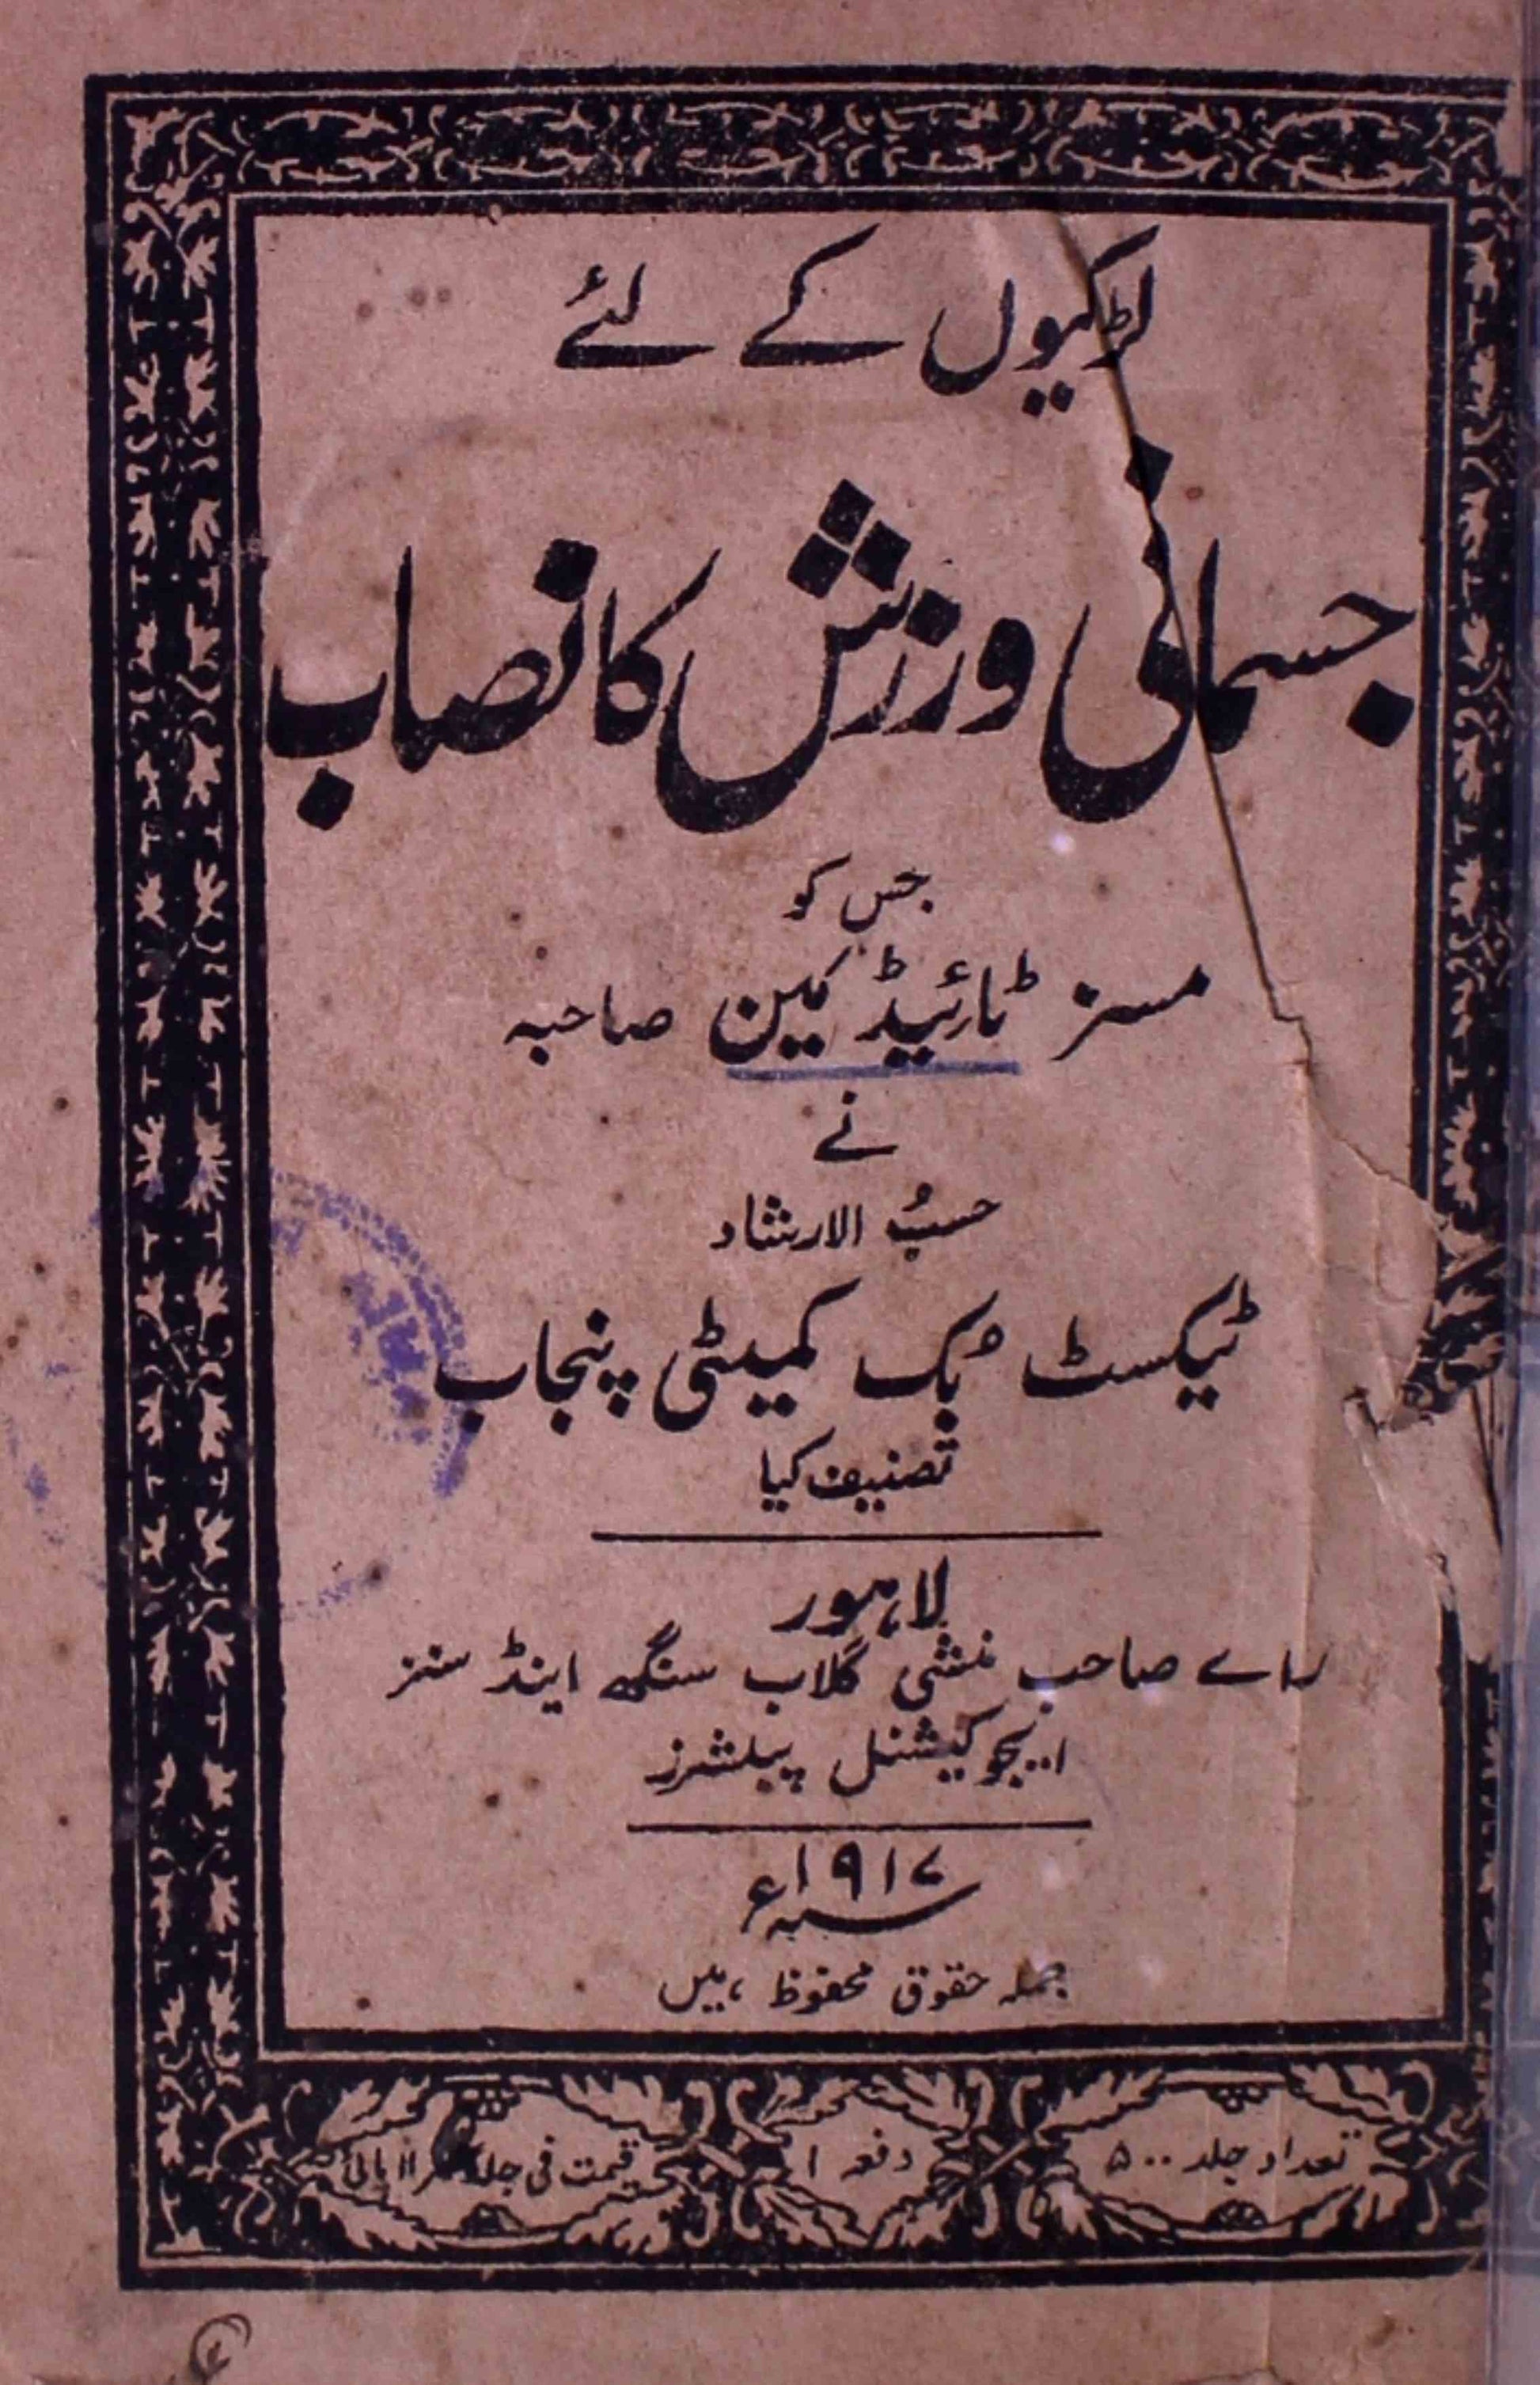 لڑکیوں کے لئے
جسمانی ورزش کا نصاب
جس کو
مسز ٹارئیڈ کین صاحبہ
نے
حسبُ الارشاد
ٹیکسٹ بُک کمیٹی پنجاب
تصنیف کیا
لاہور
راے صاحب منشی گلاب سنگھ اینڈ سنز
ایجوکیشنل پبلشرز
سنہ ۱۹۱۷ء
جملہ حقوق محفوظ ہیں
تعداد جلد ۵۰۰
دفعہ ۱
قیمت فی جلد